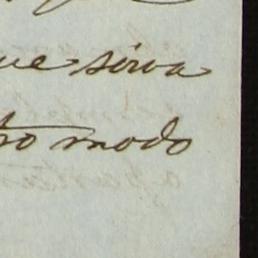 que sirva
tro modo